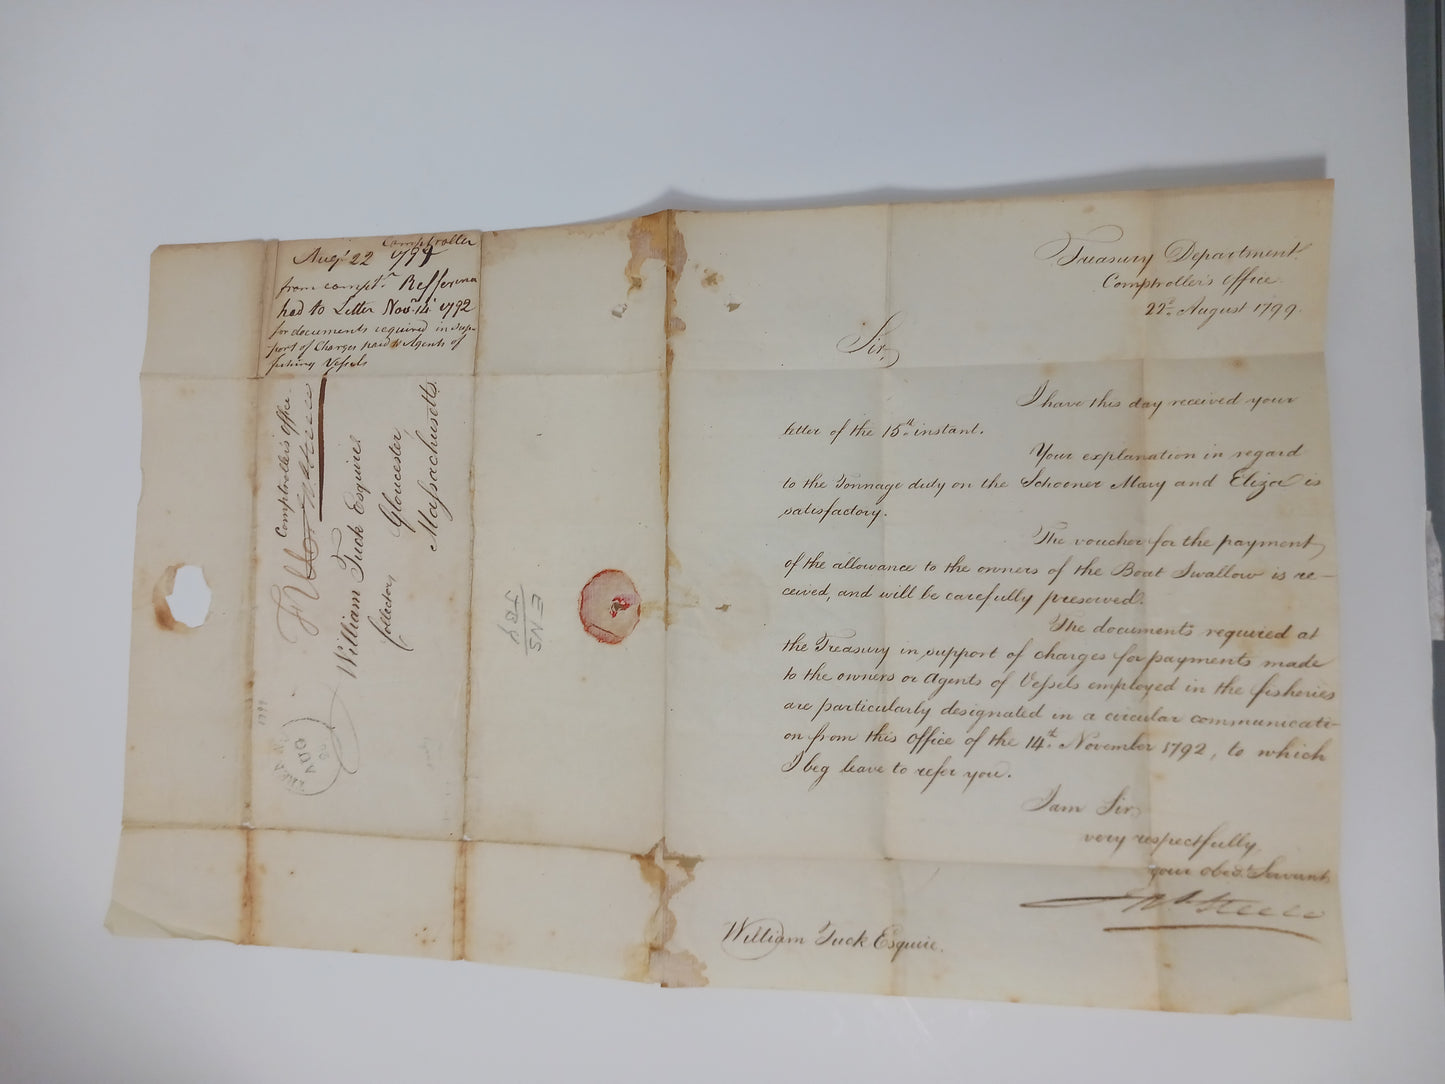 Treasury Department.
Comptroller's Office
22d. August 1799.
Sir,
I have this day received your
letter of the 15th. instant.
Your explanation in regard
to the Tonnage duty on the Schooner Mary and Eliza is
satisfactory.
The voucher for the payment
of the allowance to the owners of the Boat Swallow is re-
ceived, and will be carefully preserved.
The documents required at
the Treasury in support of charges for payments made
to the owners or Agents of Vessels employed in the fisheries
are particularly designated in a circular communicati-
on from this Office of the 14th. November 1792, to which
I beg leave to refer you.
I am Sir,
very respectfully,
your obedt. Servant
Jno. Steele
William Tuck Esquire.
Comptroller
Augt 22 1799
from compt.r Refferrence
had to Letter Novr. 14 1792
for documents required in sup-
port of Charges paid to Agents of
fishing Vessels
Comptroller's Office.
Jno. Steele
William Tuck Esquire
Collector,
Gloucester,
Massachusetts.
AUG
1799
ENS